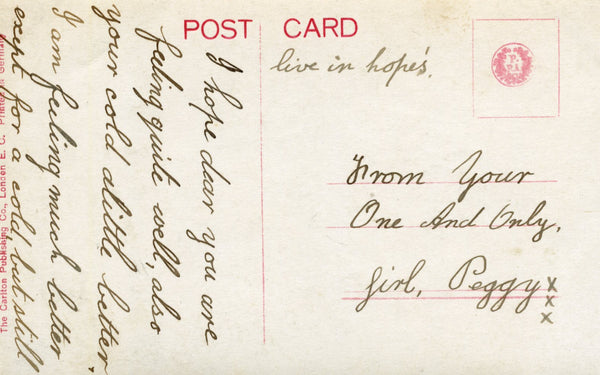 POST CARD
I hope dear you are
feeling quite well, also
your cold alittle better.
I am feeling much better
exept for a cold, but still
live in hope's.
From Your
One And Only,
Girl, Peggy
x
x
x
The Carlton Publishing Co., London E. C. Printed in Germany